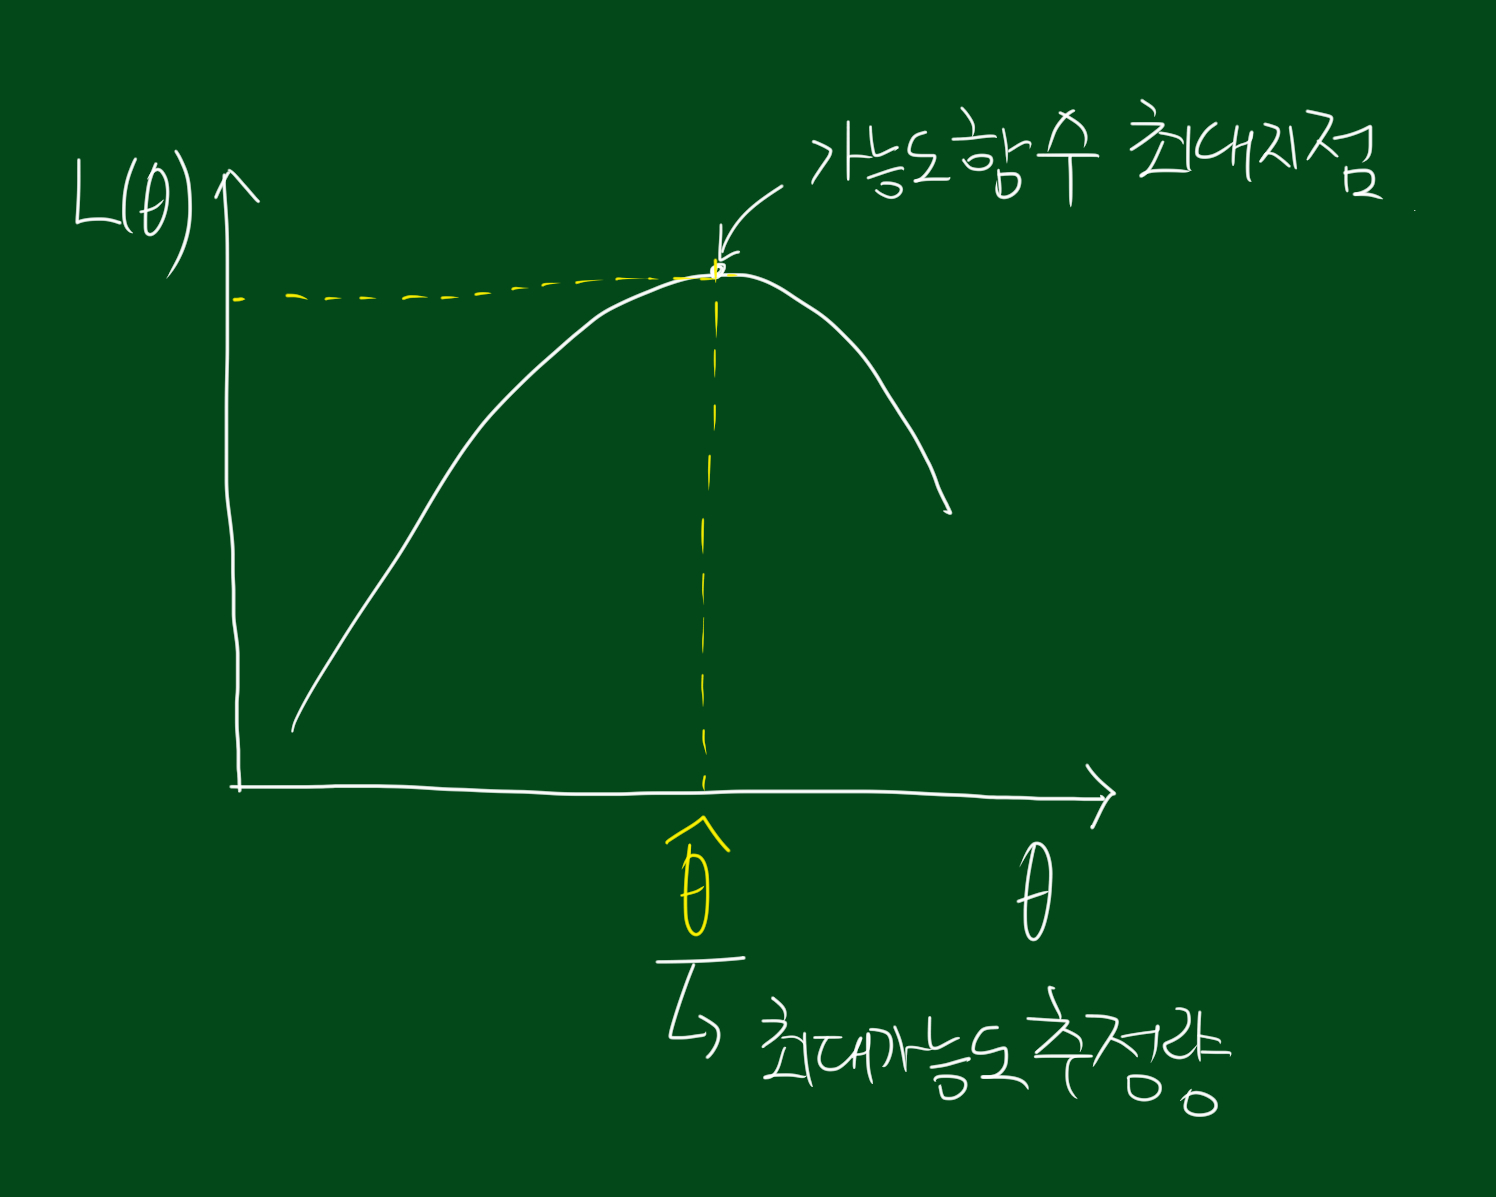 가능도함수 최대지점
L(θ)
θ̂
θ
최대가능도추정량